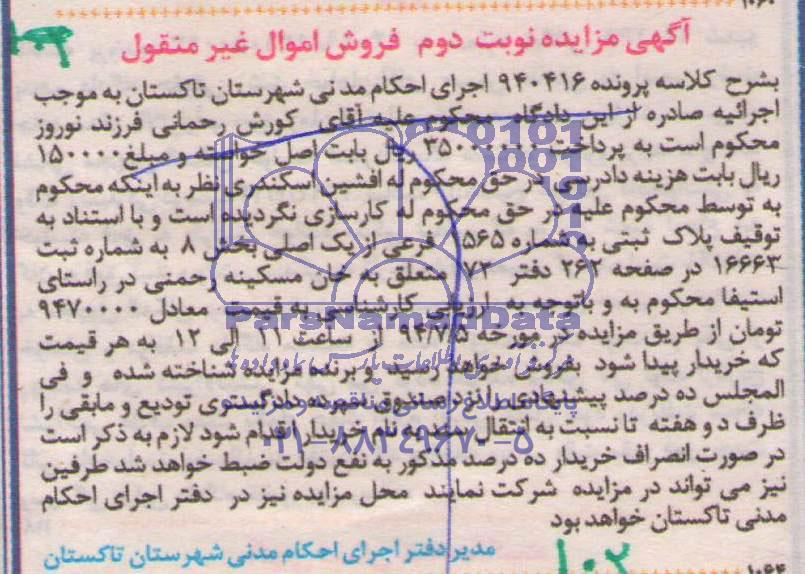 ۱۰۶۰
آگهی مزایده نوبت دوم فروش اموال غیر منقول
بشرح کلاسه پرونده ۹۴۰۴۱۶ اجرای احکام مدنی شهرستان تاکستان به موجب
اجرائیه صادره از این دادگاه محکوم علیه آقای کورش رحمانی فرزند نوروز
محکوم است به پرداخت ریال بابت اصل خواسته و مبلغ ۱۵۰۰۰۰
ریال بابت هزینه دادرسی در حق محکوم له افشین اسکندری نظر به اینکه محکوم
به توسط محکوم علیه در حق محکوم له کارسازی نگردیده است و با استناد به
توقیف پلاک ثبتی به شماره ۵۶۵ فرعی از یک اصلی بخش ۸ به شماره ثبت
۱۶۶۶۳ در صفحه ۲۶۲ دفتر ۷۲ متعلق به خان مسکینه رحمنی در راستای
استیفا محکوم به و باتوجه به ارزیابی کارشناسی به قیمت معادل ۹۴۷۰۰۰۰
تومان از طریق مزایده در مورخه ۹۴/۷/۵ از ساعت ۱۱ الی ۱۲ به هر قیمت
که خریدار پیدا شود بفروش خواهد رسید و برنده مزایده شناخته شده و فی
المجلس ده درصد پیشنهادی را نزد صندوق سپرده دادگستری تودیع و مابقی را
ظرف دو هفته تا نسبت به انتقال سند به نام خریدار اقدام شود لازم به ذکر است
در صورت انصراف خریدار ده درصد مذکور به نفع دولت ضبط خواهد شد طرفین
نیز می تواند در مزایده شرکت نمایند محل مزایده نیز در دفتر اجرای احکام
مدنی تاکستان خواهد بود
مدیر دفتر اجرای احکام مدنی شهرستان تاکستان
۱۰۲
۱۰۶۴
ParsNamadData
۰۲۱-۸۸۳۴۹۶۷۰-۵